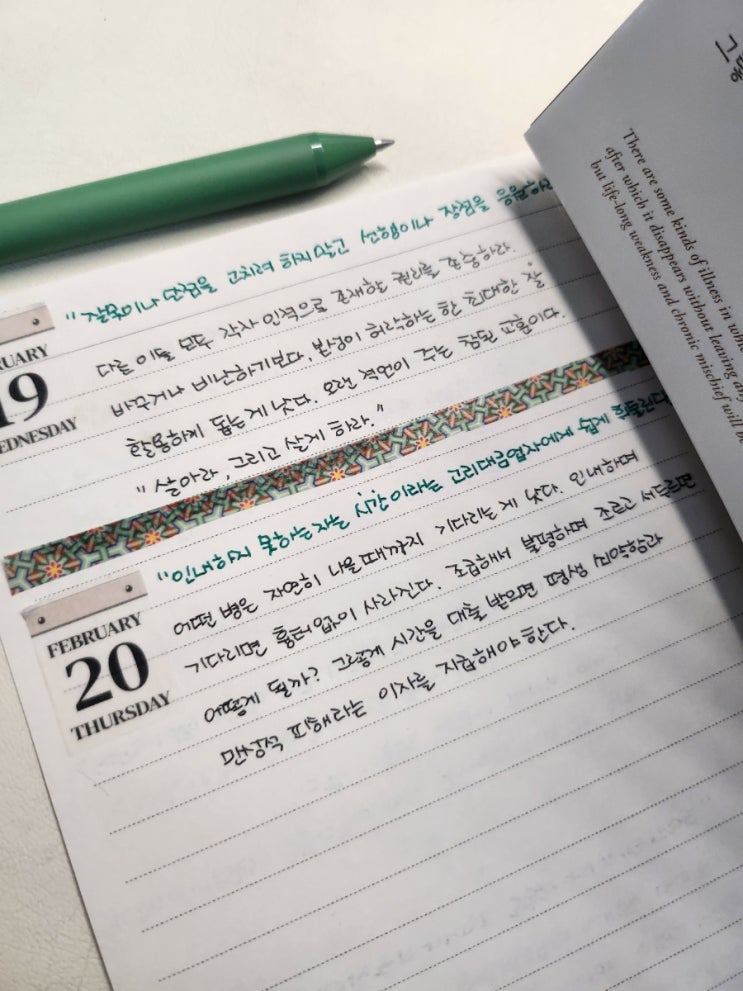 "잘못이나 단점을 고치려 하지 말고 선행이나 장점을
다른 이들 모두 각자 인격으로 존재하는 권리를 존중하라.
바꾸거나 비난하기보다, 본성이 허락하는 한 최대한 잘
활용하게 돕는 게 낫다. 오랜 격언이 주는 참된 교훈이다.
"살아라, 그리고 살게 하라."
RUARY
19
EDNESDAY
"인내하지 못하는 자는 시간이라는 고리대금업자에게 쉽게
어떤 병은 자연히 나을 때까지 기다리는 게 낫다. 인내하며
기다리면 흉터 없이 사라진다. 조급해서 불평하며 조르고 서두르면
어떻게 될까? 그렇게 시간을 대출 받으면 평생 쇠약함과
만성적 피해라는 이자를 지급해야 한다.
FEBRUARY
20
THURSDAY
There are some kinds of illness in whi
after which it disappears without leaving any
but life-long weakness and chronic mischief will b